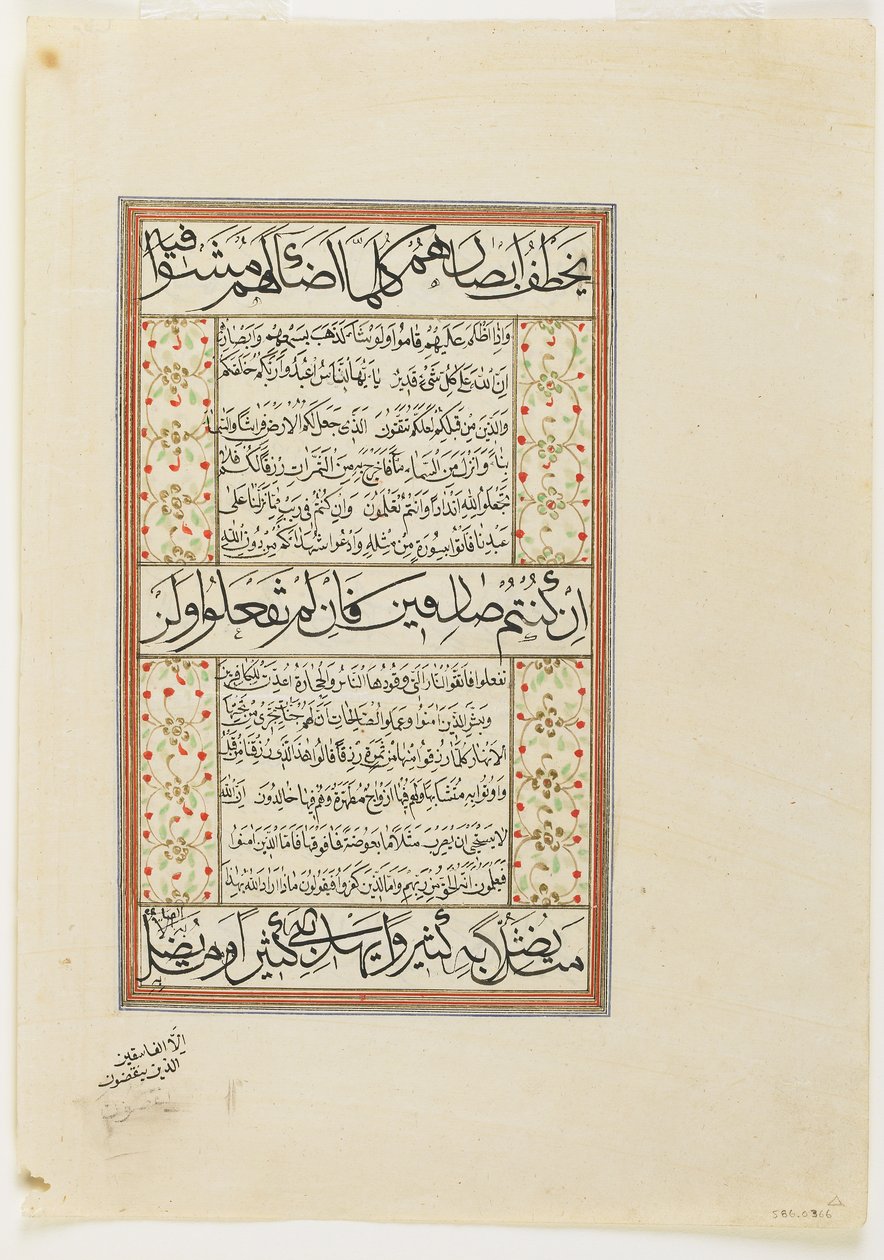 يخطف ابصارهم كلما اضائلهم مشوا فيه
واذا اظلم عليهم قاموا ولو شاء لذهب بسمعهم وابصارهم
ان الله على كل شيء قدير يا يها الناس اعبدوا ربكم خلقكم
والذين من قبلكم لعلكم تتقون الذي جعل لكم الارض فراشا والسماء
بناء وانزل من السماء ماء فاخرج به من الثمرات رزقا لكم فلا
تجعلوا لله اندادا وانتم تعلمون وان كنتم في ريب مما نزلنا على
عبدنا فاتوا بسورة من مثله وادعوا شهداءكم من دون الله
ان كنتم صادقين فان لم تفعلوا ولن
تفعلوا فاتقوا النار التي وقودها الناس والحجارة اعدت للكافرين
وبشر الذين امنوا وعملوا الصالحات ان لهم جنات تجري من تحتها
الانهار كلما رزقوا منها من ثمرة رزقا قالوا هذا الذي رزقنا من قبل
واوتوا به متشابها ولهم فيها ازواج مطهرة وهم فيها خالدون ان الله
لا يستحيي ان يضرب مثلا ما بعوضة فما فوقها فاما الذين امنوا
فيعلمون انه الحق من ربهم واما الذين كفروا فيقولون ماذا اراد الله بهذا
مثلا يضل به كثيرا ويهدي به كثيرا وما يضل به
الا الفاسقين
الذين ينقضون
ينقضون
586.0366